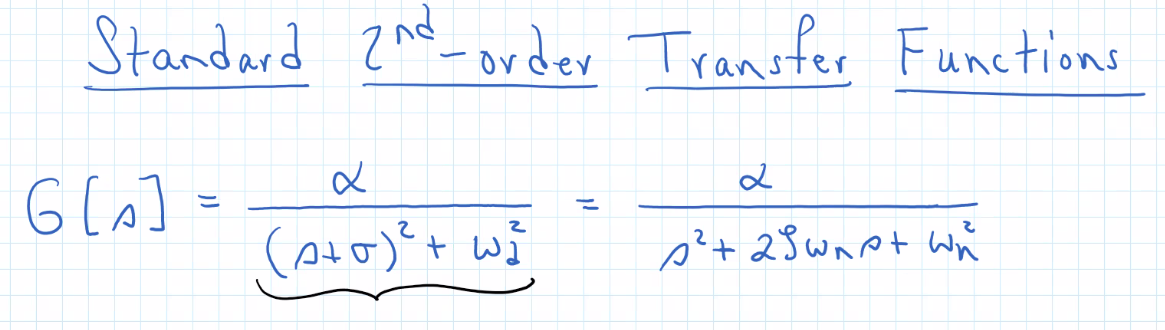 Standard 2nd-order Transfer Functions
G[s] = α / ((s+σ)² + ω_d²) = α / (s² + 2ζω_n s + ω_n²)